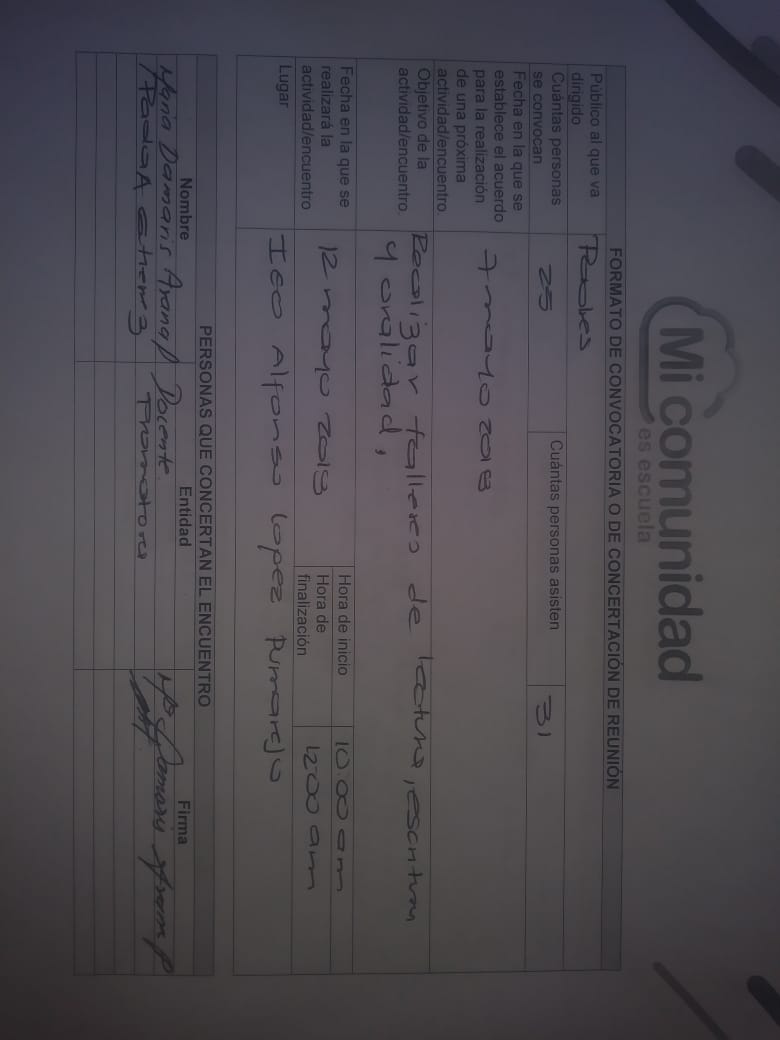 Mi comunidad
es escuela
FORMATO DE CONVOCATORIA O DE CONCERTACIÓN DE REUNIÓN
Público al que va
dirigido
Padres
Cuántas personas
se convocan
25
Cuántas personas asisten
31
Fecha en la que se
establece el acuerdo
para la realización
de una próxima
actividad/encuentro
7 mayo 2018
Objetivo de la
actividad/encuentro.
Realizar talleres de lectura, escritura
y oralidad,
Fecha en la que se
realizará la
actividad/encuentro
12 mayo 2018
Hora de inicio
10:00 am
Hora de
finalización
1200 am
Lugar
IEO Alfonso Lopez Pumarejo
PERSONAS QUE CONCERTAN EL ENCUENTRO
Nombre
Entidad
Firma
Maria Damaris Arana P
Docente
Mª Damaris Arana P
Paola A
Promotora